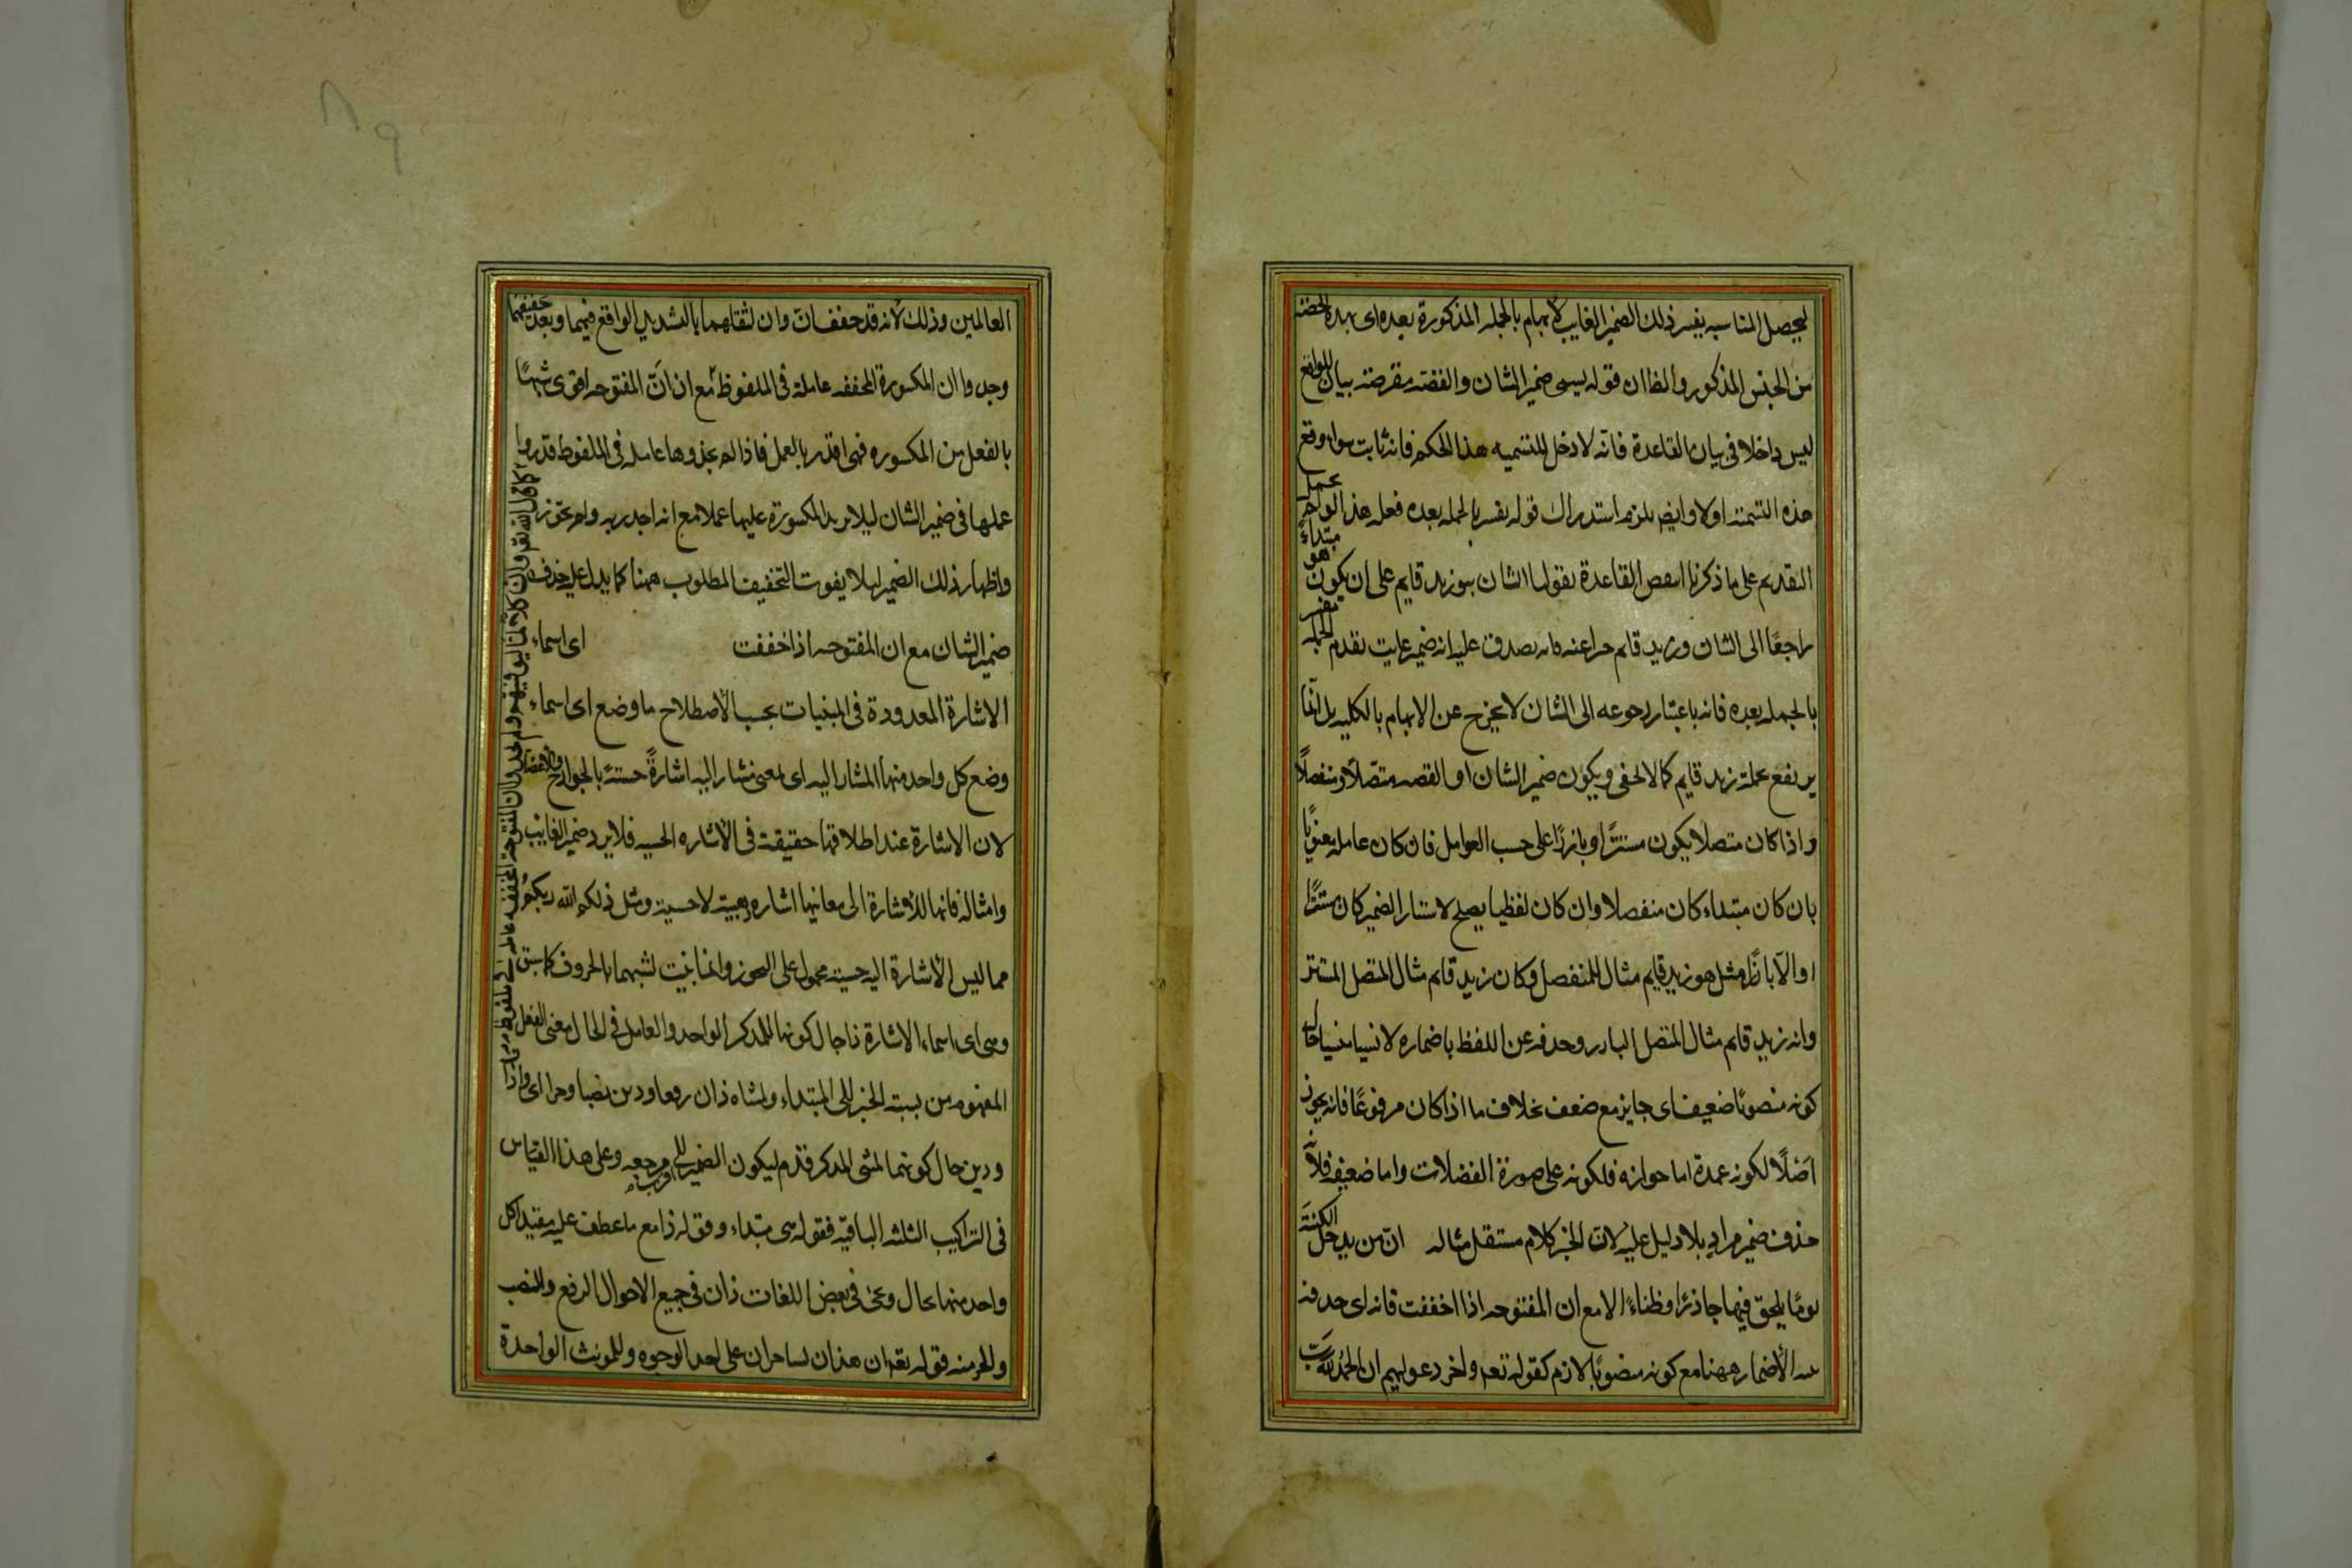 ليحصل المناسبه يفسر ذلك الضمير الغايب لابهامه بالجمله المذكورة بعده اى بهذه الحصة
من الجنس المذكور والظ ان قوله يسمى ضمير الشان والقصة معترضة بيان للواقع
ليس داخلا فى بيان القاعدة فانه لا دخل للتسميه هذا الحكم فانه ثابت سواء وقع
هذه التسمية اولا وايضا يلزم استدراك قوله يفسر بالجمله بعده فعلى هذا لو لم يحمل
التقديم على ما ذكرنا انتقض القاعدة بقولنا الشان هو زيد قايم على ان يكون هو مبتداء
راجعا الى الشان وزيد قايم خبرا عنه فانه يصدق عليه انه ضمير غايب تقدم الجملة يفسر
بالجمله بعده فانه باعتبار رجوعه الى الشان لا يخرج عن الابهام بالكليه بل انما
يرتفع بجملة زيد قايم كما لا يخفى ويكون ضمير الشان او القصه متصلا ومنفصلا
واذا كان متصلا يكون مستترا وبارزا على حسب العوامل فان كان عامله معنويا
بان كان مبتداء كان منفصلا وان كان لفظيا يصلح لاستتار الضمير كان مستترا
والا بارزا مثل هو زيد قايم مثال للمنفصل وكان زيد قايم مثال المتصل المستتر
وانه زيد قايم مثال المتصل البارز وحذفه عن اللفظ باضماره لا نسيا منسيا حال
كونه منصوبا ضعيف اى جايز مع ضعف بخلاف ما اذا كان مرفوعا فانه لا يجوز
اصلا لكونه عمدة اما جوازه فلكونه على صورة الفضلات واما ضعفه فلانه
حذف ضمير مراد بلا دليل عليه لان الخبر كلام مستقل مثاله ان من يدخل الكنيسة
يوما يلحق فيها جاذرا وظباء الا مع ان المفتوحه اذا خففت فانه اى حذفه
بنية الاضمار ههنا مع كونه منصوبا لازم كقوله تعه واخر دعويهم ان الحمد لله رب
العالمين وذلك لانه قد خففت ان وان لثقلهما بالتشديد الواقع فيهما وبعد تخفيفهما
وجدوا ان المكسورة المخففه عاملة فى الملفوظ مع ان ان المفتوحه اقوى شبها
بالفعل من المكسوره فهى اقدر بالعمل فاذا لم يجدوها عامله فى الملفوظ قدروا
عملها فى ضمير الشان ليلا يزيد المكسورة عليها عملا مع انه اجدر به ولم يجوزوا
اظهار ذلك الضمير ليلا يفوت التخفيف المطلوب ههنا كما يدل عليه حذف
ضمير الشان مع ان المفتوحه اذا خففت اى اسماء
الاشارة المعدودة فى المبنيات بحسب الاصطلاح ما وضع اى اسماء
وضع كل واحد منها المشار اليه اى لمعنى مشار اليه اشارة حسية بالجوارح والاعضاء
لان الاشارة عند اطلاقها حقيقة فى الاشاره الحسيه فلا يرد ضمير الغايب
وامثاله فانها للاشارة الى معانيها اشاره ذهنية لا حسية ومثل ذلكم الله ربكم
مما ليس الاشارة اليه حسية محمول على التجوز وانما بنيت لشبهها بالحروف كما سبق
وهى اى اسماء الاشارة ذا حال كونها للمذكر الواحد والعامل فى الحال معنى الفعل
المفهوم من نسبة الخبر الى المبتداء ولمثناه ذان رفعا وذين نصبا وجرا اى واذا
وذين حال كونهما لمثنى المذكر قدم ليكون الضمير اقرب الى مرجعه وعلى هذا القياس
فى التراكيب الثلثه الباقية فقوله هى مبتداء وقوله ذا مع ما عطف عليه مقيدا كل
واحد منها بحال وعن فى بعض اللغات ذان فى جميع الاحوال الرفع والنصب
والجر ومنه قوله تعه ان هذان لساحران على احد الوجوه وللمونث الواحدة